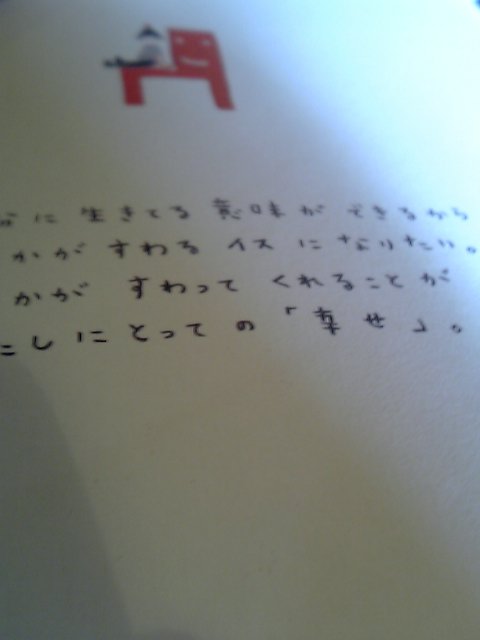 に生きてる意味ができるから
かがすわるイスになりたい。
かがすわってくれることが
こしにとっての「幸せ」。